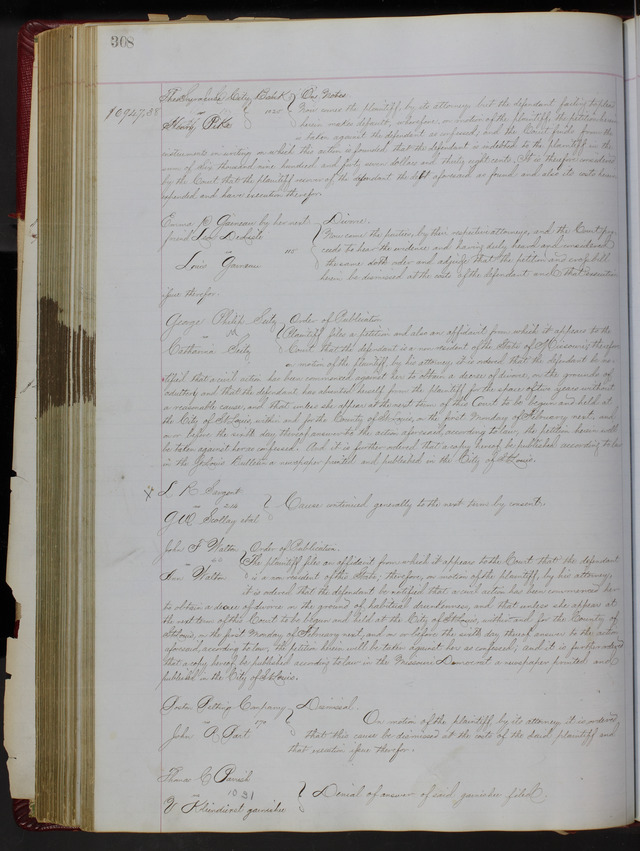 308
The City Bank } On Notes
10947.38 vs 1125 Now comes the plaintiff, by its attorney but the defendant failing to plead
Henry Pike herein makes default, wherefore, on motion of the plaintiff, the petition herein
is taken against the defendant as confessed; and the Court finds from the
instruments in writing on which this action is founded that the defendant is indebted to the plaintiff in the
sum of Ten thousand nine hundred and forty seven dollars and thirty eight cents. It is therefore considered
by the Court that the plaintiff recover of the defendant the debt aforesaid so found and also its costs herein
expended and have execution therefor.
Emma by her next } Divorce.
friend Now come the parties, by their respective attorneys, and the Court pro-
ceeds to hear the evidence and having duly heard and considered
Louis the same doth order and adjudge that the petition and cross bill
herein be dismissed at the costs of the defendant and that execution
issue therefor.
George Philip Seily } Order of Publication
vs Plaintiff files a petition and also an affidavit from which it appears to the
Catharine Seily Court that the defendant is a non resident of the State of Missouri, therefore
on motion of the plaintiff, by his attorney, it is ordered that the defendant be no-
tified that a civil action has been commenced against her to obtain a decree of divorce, on the grounds of
adultery and that the defendant has absented herself from the plaintiff for the space of two years without
a reasonable cause, and that unless she appear at the next term of this Court to be begun and held at
the City of St Louis, within and for the County of St Louis, on the first Monday of February next, and
on or before the sixth day thereof answer to the action aforesaid, according to law, the petition herein will
be taken against her as confessed. And it is further ordered that a copy hereof be published according to law
in the St Louis a newspaper printed and published in the City of St Louis.
X L. R. Sargent
vs } Cause continued generally to the next term by consent.
G W Scollay et al
John F Walton } Order of Publication.
vs The plaintiff files an affidavit from which it appears to the Court that the defendant
Ann Walton is a non resident of this State, therefore, on motion of the plaintiff, by his attorney,
it is ordered that the defendant be notified that a civil action has been commenced her
to obtain a decree of divorce on the ground of habitual drunkenness, and that unless she appears at
the next term of this Court to be begun and held at the City of St Louis, within and for the County of
St Louis, on the first Monday of February next, and on or before the sixth day thereof answer to the action
aforesaid, according to law, the petition herein will be taken against her as confessed; and it is further ordered
that a copy hereof be published according to law in the Missouri Democrat a newspaper printed and
published in the City of St Louis.
Company } Dismissal.
vs 170 On motion of the plaintiff by its attorney it is ordered
John R. that this cause be dismissed at the costs of the said plaintiff and
that execution issue therefor.
Thomas C Parrish
vs 1031 } Denial of answer of said garnishee filed.
V. garnishee